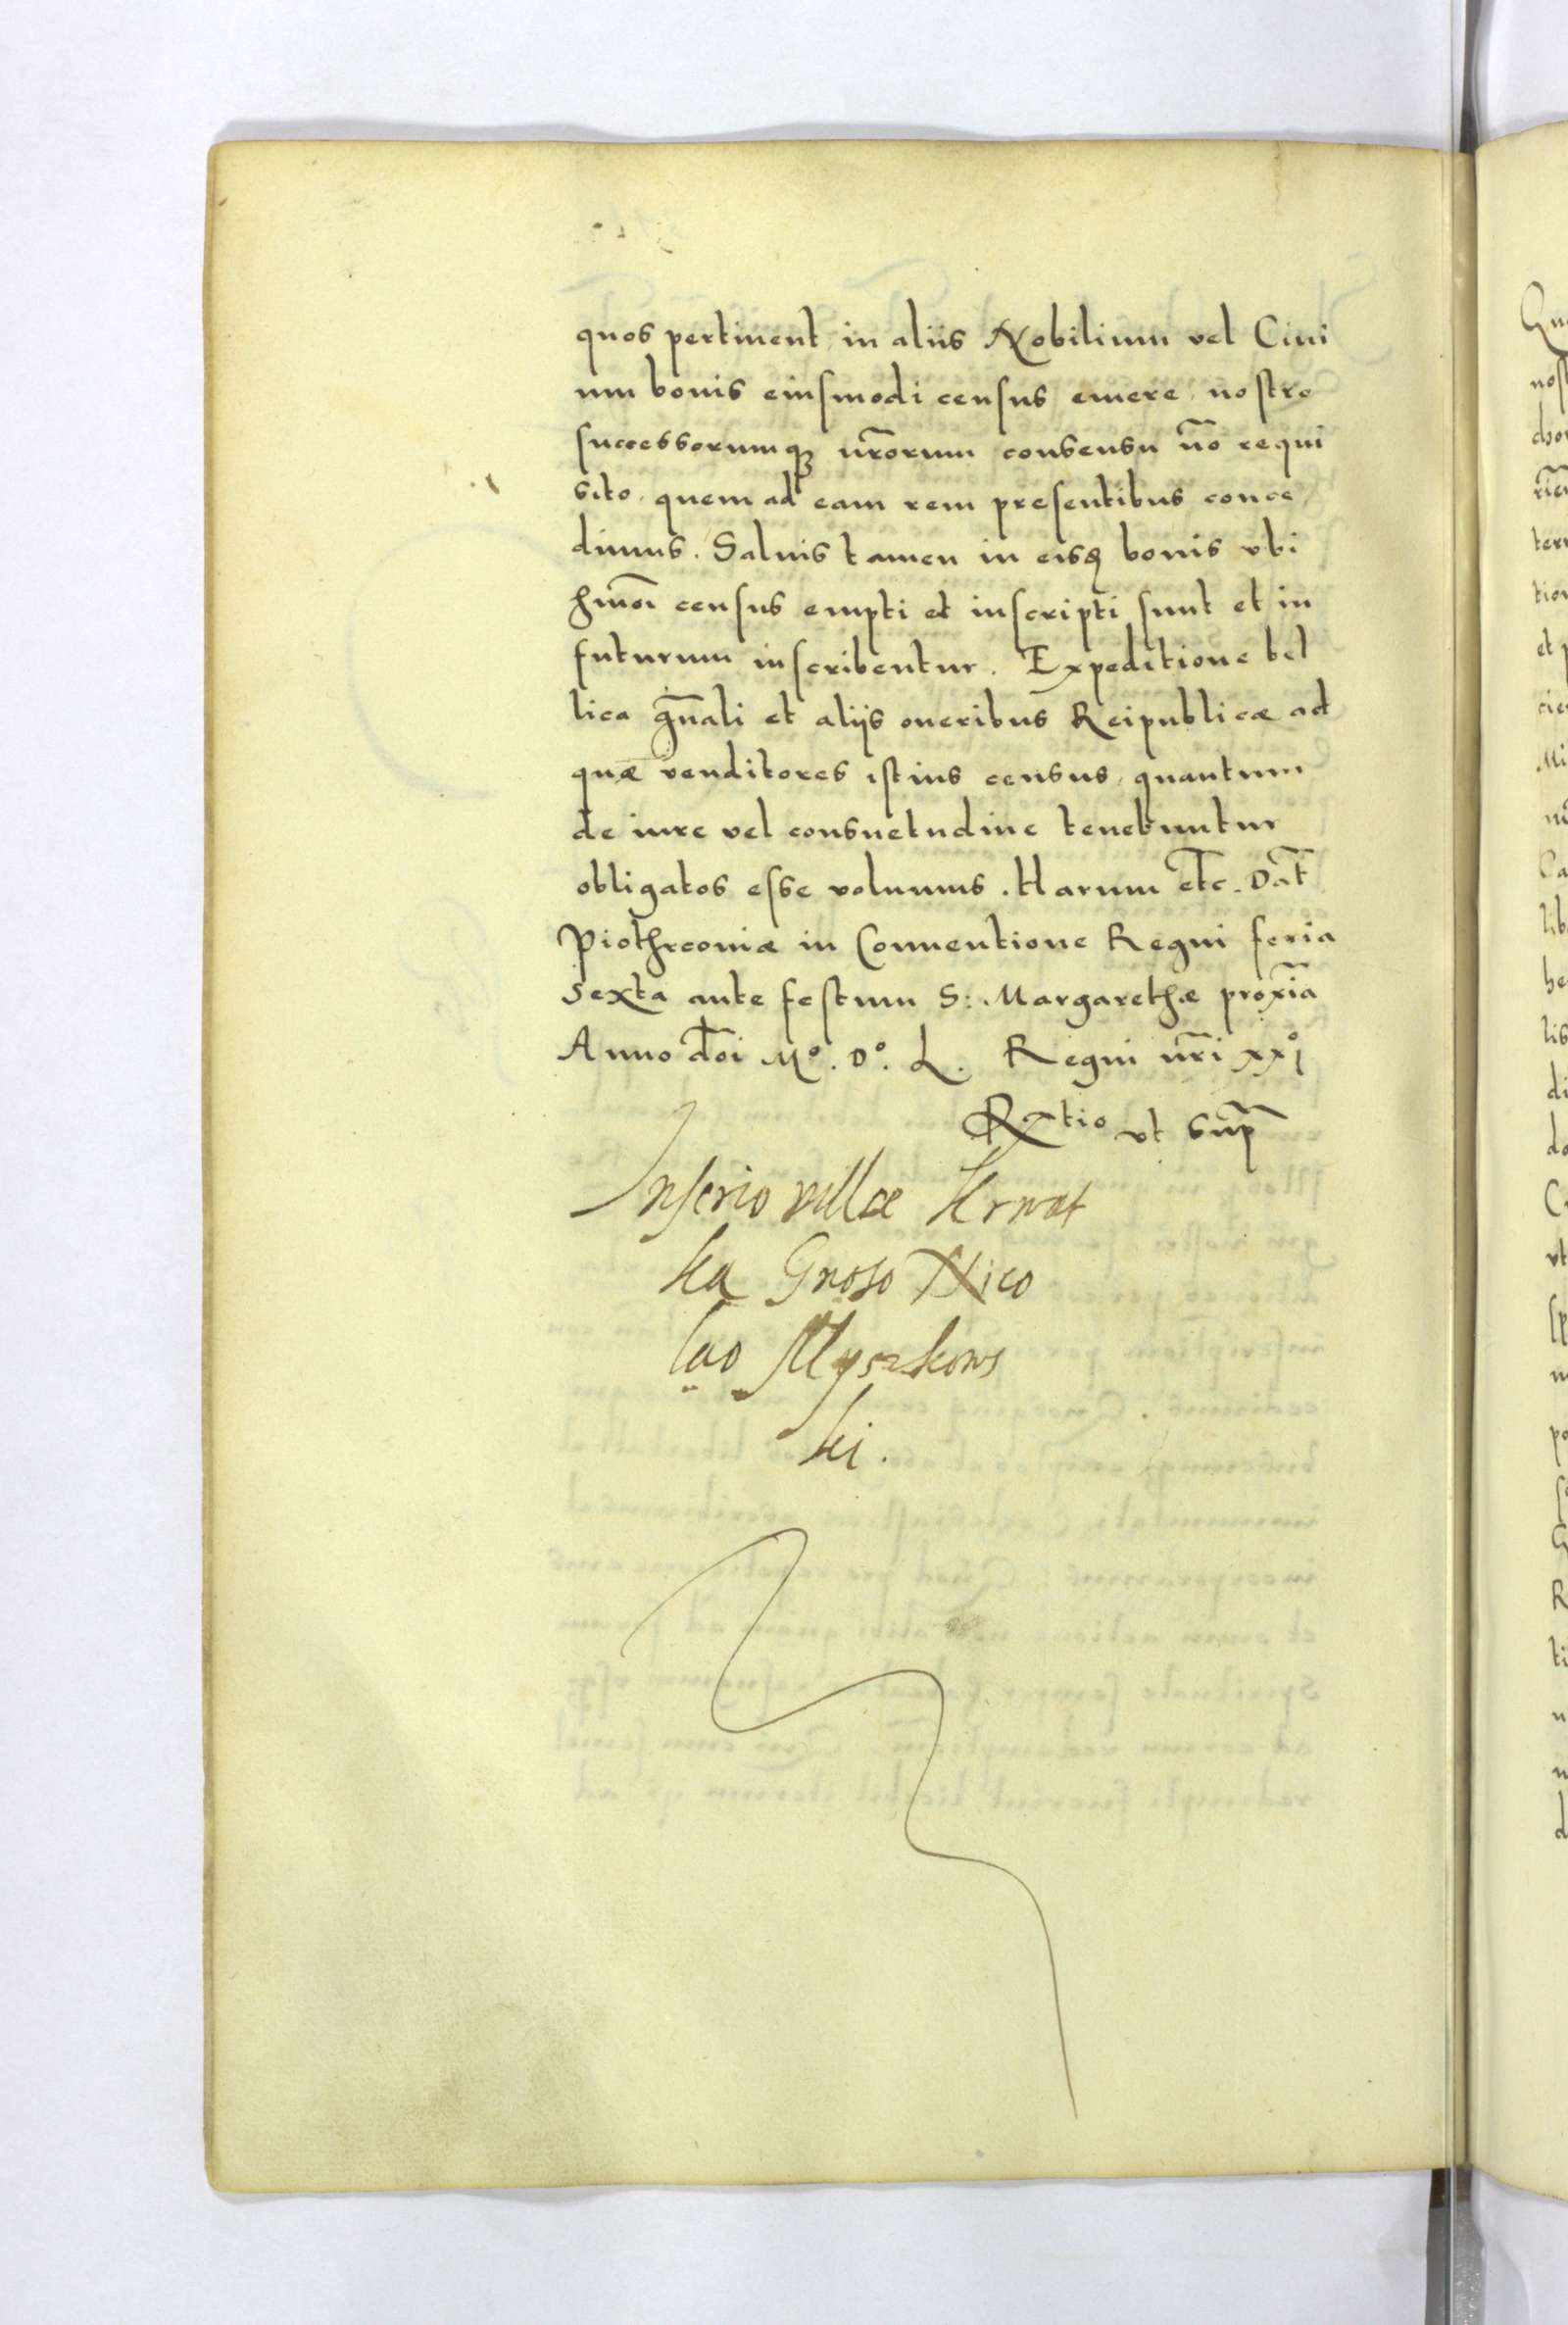 quos pertinent in aliis Nobilium vel Ciui
um bonis eiusmodi census emere nostro
successorumq3 nr̃orum consensu nõ requi
sito. quem ad eam rem presentibus conce
dimus. Saluis tamen in eisđ bonis vbi
hmõi census empti et inscripti sunt et in
futurum inscribentur. Expeditione bel
lica gñali et aliis oneribus Reipublicæ ad
quæ venditores istius census quantum
de iure vel consuetudine tenebuntur
obligatos esse volumus. Harum etc̃. Dat̃
Piothrconiæ in Conuentione Regni feria
sexta ante festum S: Margarethæ proxĩa
Anno dõi Mº. Dº. L. Regni nr̃i xxj
Rtio vt sup̃
Inscrio villæ Krwat
ka Gnoso Nico
lao Myszkows
ki.